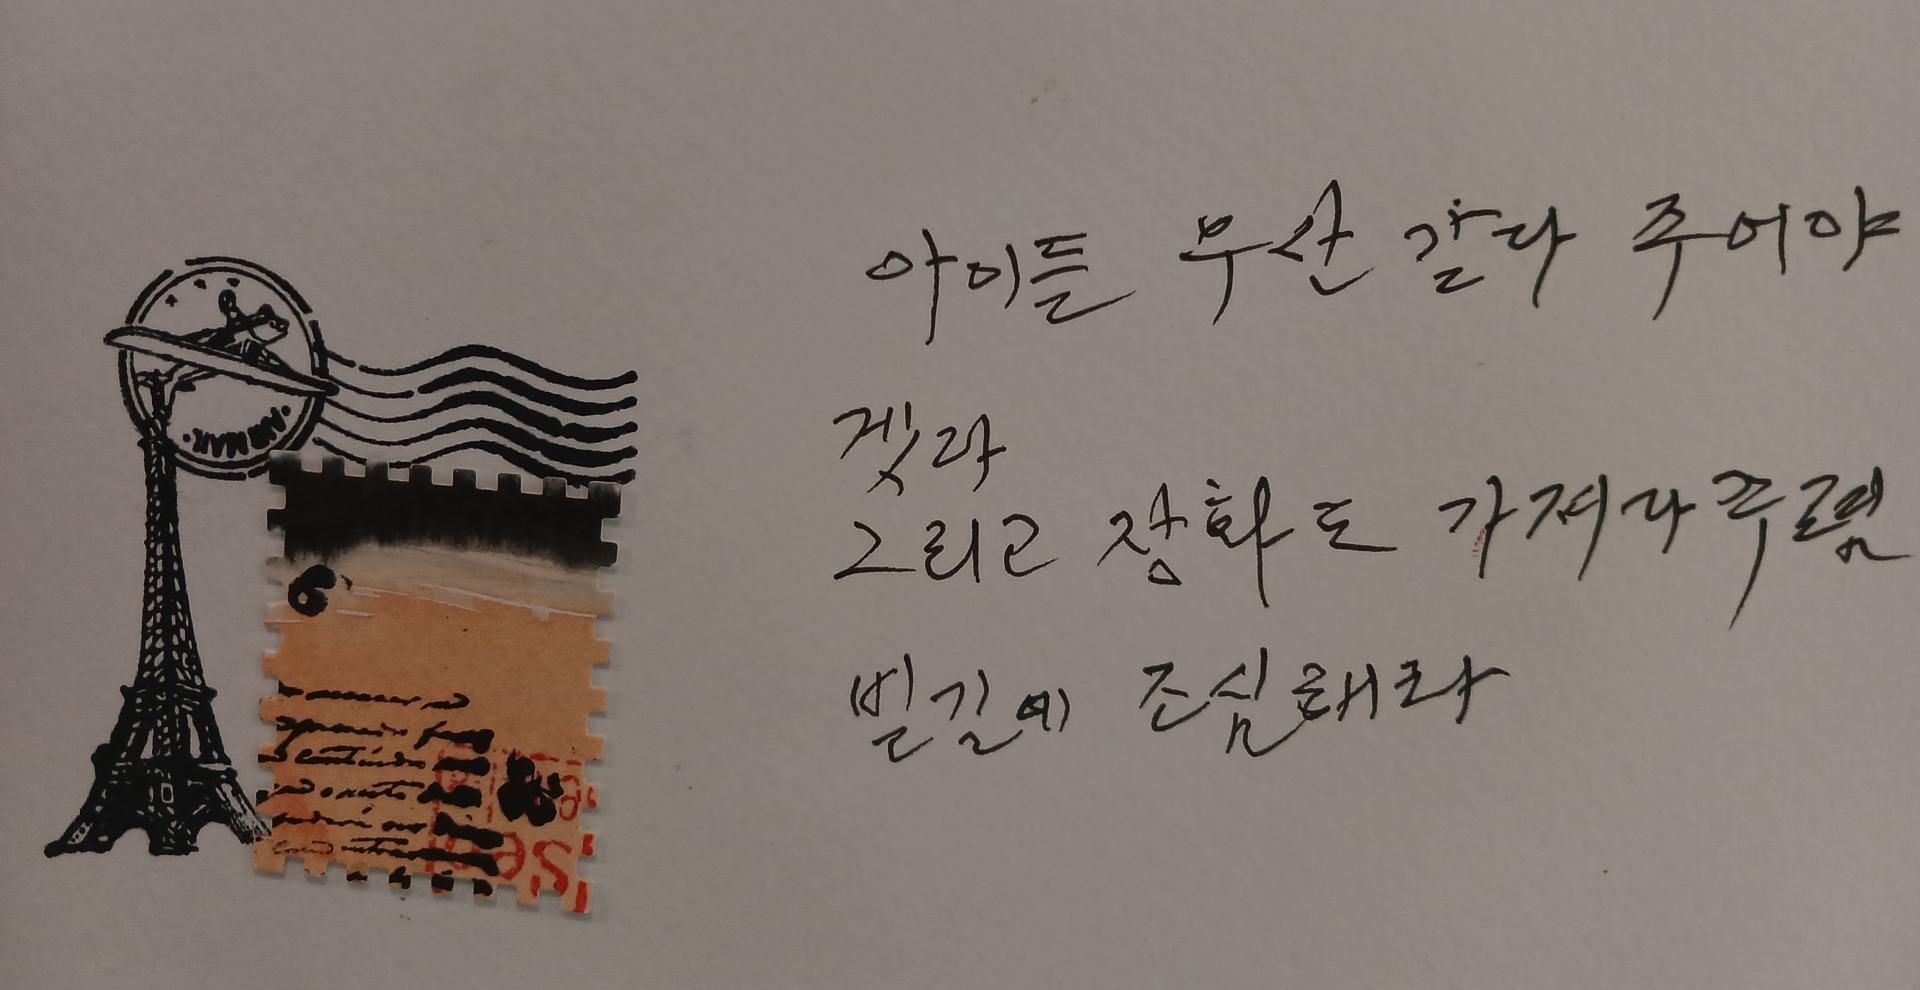 아이들 우산 갖다 주어야
겠다
그리고 장화도 가져다주렴
빌길에 조심해라
AIR MAIL